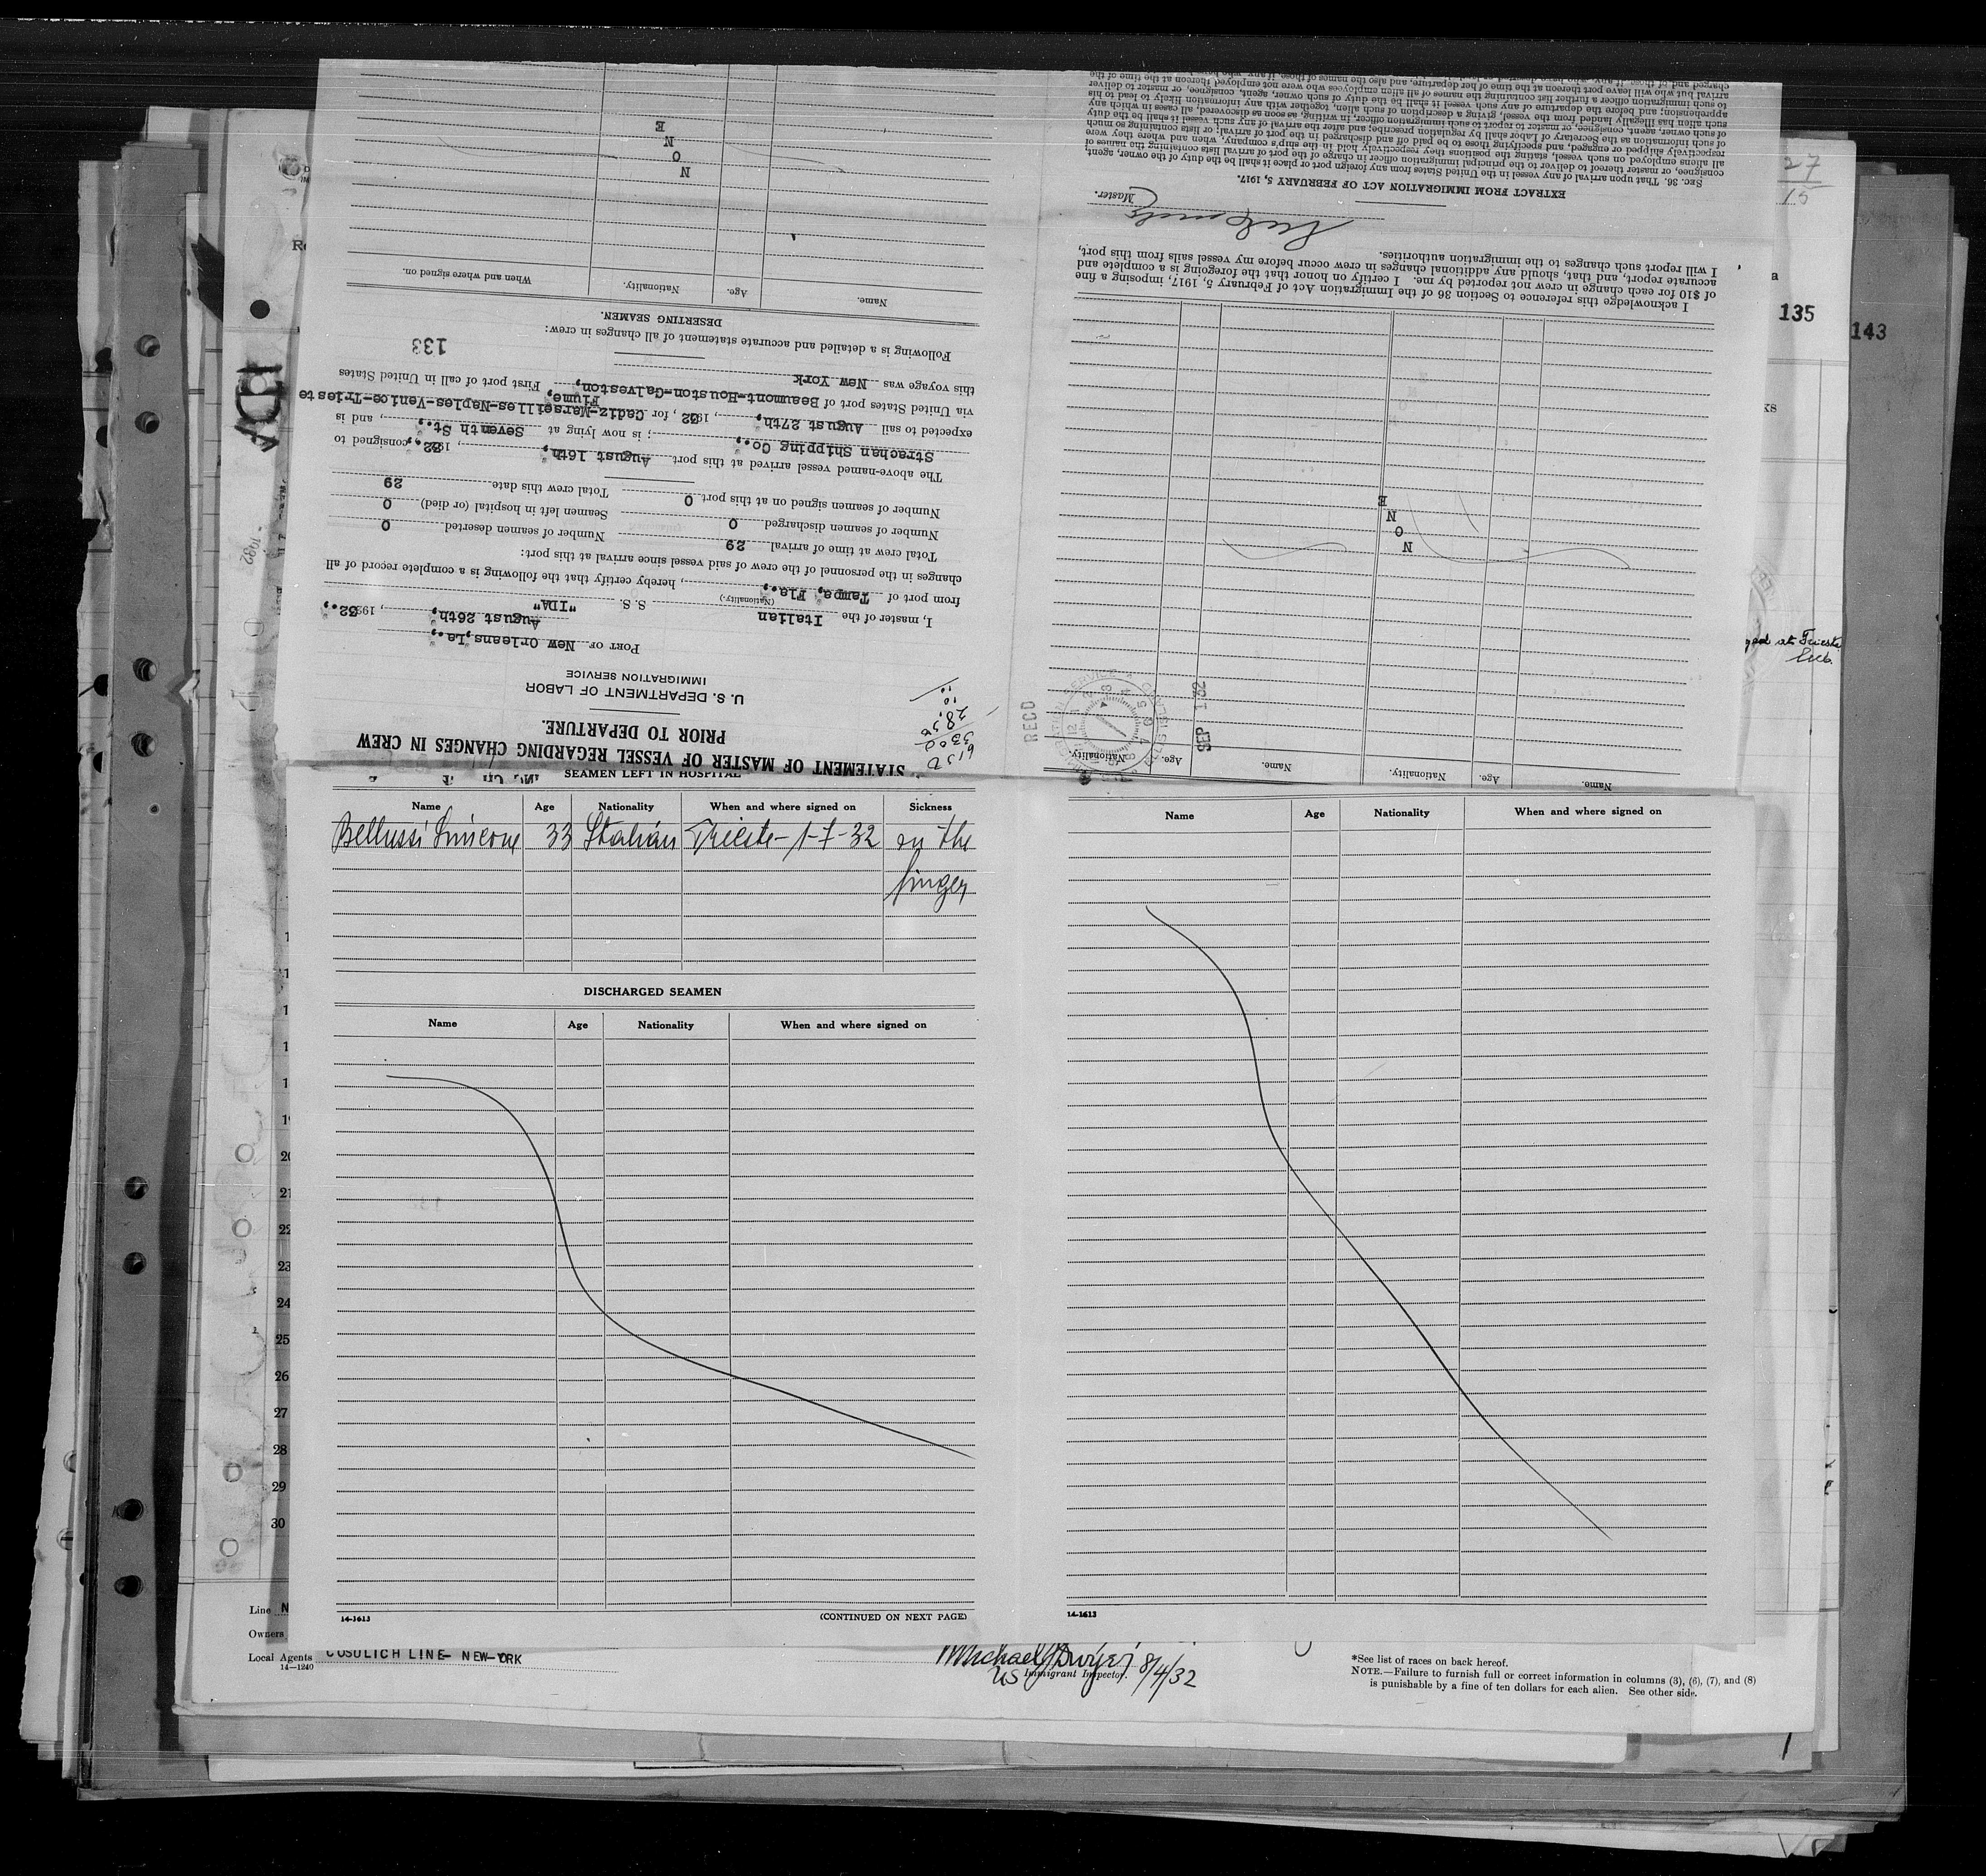 STATEMENT OF MASTER OF VESSEL REGARDING CHANGES IN CREW
PRIOR TO DEPARTURE.
U. S. DEPARTMENT OF LABOR
IMMIGRATION SERVICE
PORT OF New Orleans, La.,
August 26th, 1932.,
I, master of the Italian S. S. "IDA"
(Nationality.)
from port of Tampa, Fla., hereby certify that the following is a complete record of all
changes in the personnel of the crew of said vessel since arrival at this port:
Total crew at time of arrival 29 Number of seamen deserted 0
Number of seamen discharged 0 Seamen left in hospital (or died) 0
Number of seamen signed on at this port 0 Total crew this date 29
The above-named vessel arrived at this port August 16th, 1932., consigned to
Strachan Shipping Co., ; is now lying at Seventh St., and is
expected to sail August 27th, 1932, for Cadiz-Marseilles-Naples-Venice-Trieste
Fiume,
via United States port of Beaumont-Houston-Galveston, First port of call in United States
this voyage was New York
133
Following is a detailed and accurate statement of all changes in crew:
DESERTING SEAMEN.
Name. Age. Nationality. When and where signed on.
N
O
N
E
Name. Age. Nationality.
Name. Age. Nationality.
RECD
SEP 1 32
N
O
N
E
I acknowledge this reference to Section 36 of the Immigration Act of February 5, 1917, imposing a fine
of $10 for each change in crew not reported by me. I certify on honor that the foregoing is a complete and
accurate report, and that, should any additional changes in crew occur before my vessel sails from this port,
I will report such changes to the immigration authorities.
Master.
EXTRACT FROM IMMIGRATION ACT OF FEBRUARY 5, 1917.
SEC. 36. That upon arrival of any vessel in the United States from any foreign port or place it shall be the duty of the owner, agent,
consignee, or master thereof to deliver to the principal immigration officer in charge of the port of arrival lists containing the names of
all aliens employed on such vessel, stating the positions they respectively hold in the ship's company, when and where they were
respectively shipped or engaged, and specifying those to be paid off and discharged in the port of arrival; or lists containing so much
of such information as the Secretary of Labor shall by regulation prescribe; and after the arrival of any such vessel it shall be the duty
of such owner, agent, consignee, or master to report to such immigration officer, in writing, as soon as discovered, all cases in which any
such alien has illegally landed from the vessel, giving a description of such alien, together with any information likely to lead to his
apprehension; and before the departure of any such vessel it shall be the duty of such owner, agent, consignee, or master to deliver
to such immigration officer a further list containing the names of all alien employees who were not employed thereon at the time of the
arrival but who will leave port thereon at the time of her departure, and also the names of those, if any, who
SEAMEN LEFT IN HOSPITAL
Name Age Nationality When and where signed on Sickness
Bellussi 33 Italian Trieste - 1-7-32 in the
finger
DISCHARGED SEAMEN
Name Age Nationality When and where signed on
14-1613 (CONTINUED ON NEXT PAGE)
Name Age Nationality When and where signed on
14-1613
27
15
135
143
1932
20
21
22
23
24
25
26
27
28
29
30
at Trieste
Line
Owners
Local Agents COSULICH LINE - NEW-YORK
14-1240
Michael Dwyer 8/4/32
US Immigrant Inspector.
*See list of races on back hereof.
NOTE.—Failure to furnish full or correct information in columns (3), (6), (7), and (8)
is punishable by a fine of ten dollars for each alien. See other side.